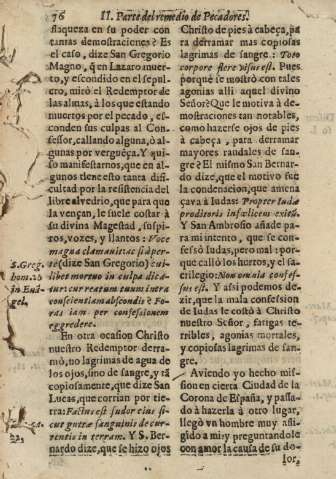 76 II. Parte del remedio de Pecadores.
flaqueza en su poder con
tantas demostraciones? Es
el caso, dize San Gregorio
Magno, q̃ en Lazaro muer-
to, y escondido en el sepul-
cro, mirò el Redemptor de
las almas, à los que estando
muertos por el pecado, es-
conden sus culpas al Con-
fessor, callando alguna, ò al-
gunas por verguẽça. Y qui-
so manifestarnos, que en al-
gunos tiene esto tanta difi-
cultad por la resistencia del
libre alvedrio, que para que
la vençan, le suele costar à
su divina Magestad, suspi-
ros, vozes, y llantos: Voce
magna clamavit: ac si àper-
te (dize San Gregorio) cui-
libet mortuo in culpa dica-
tur: cur reatum tuum intra
conscientiam abscondis? Fo-
ras iam per confessionem
egredere.
En otra ocasion Christo
nuestro Redemptor derra-
mò, no lagrimas de agua de
los ojos, sino de sangre, y tã
copiosamente, que dize San
Lucas, que corrian por tie-
rra: Factus est sudor eius si-
cut guttæ sanguinis de cur-
rentis in terram. Y S. Ber-
nardo dize, que se hizo ojos
S. Greg.
hom. 26
in Euã-
gel.
22.
Christo de pies à cabeça, pa
ra derramar mas copiosas
lagrimas de sangre: Toto
corpore flere visus est. Pues
porquè se mostrò con tales
agonias alli aquel divino
Señor? Que le motiva à de-
mostraciones tan notables,
como hazerse ojos de pies
à cabeça, para derramar
mayores raudales de san-
gre? El mismo San Bernar-
do dize, que el motivo fue
la condenacion, que amena
çava à Iudas: Propter Iudæ
proditoris infælicem exitũ.
Y San Ambrosio añade pa-
ra mi intento, que se con-
fessò Iudas, pero mal: por-
que callò los hurros, y el sa-
crilegio: Non omnia confes-
sus est. Y assi podemos de-
zir, que la mala confession
de Iudas le costò à Christo
nuestro Señor, fatigas te-
rribles, agonias mortales,
y copiosas lagrimas de san-
gre.
Aviendo yo hecho mis-
sion en cierta Ciudad de la
Corona de España, y passa-
do à hazerla à otro lugar,
llegò vn hombre muy afli-
gido à mi; y preguntandole
con amor la causa de su do-
lor,